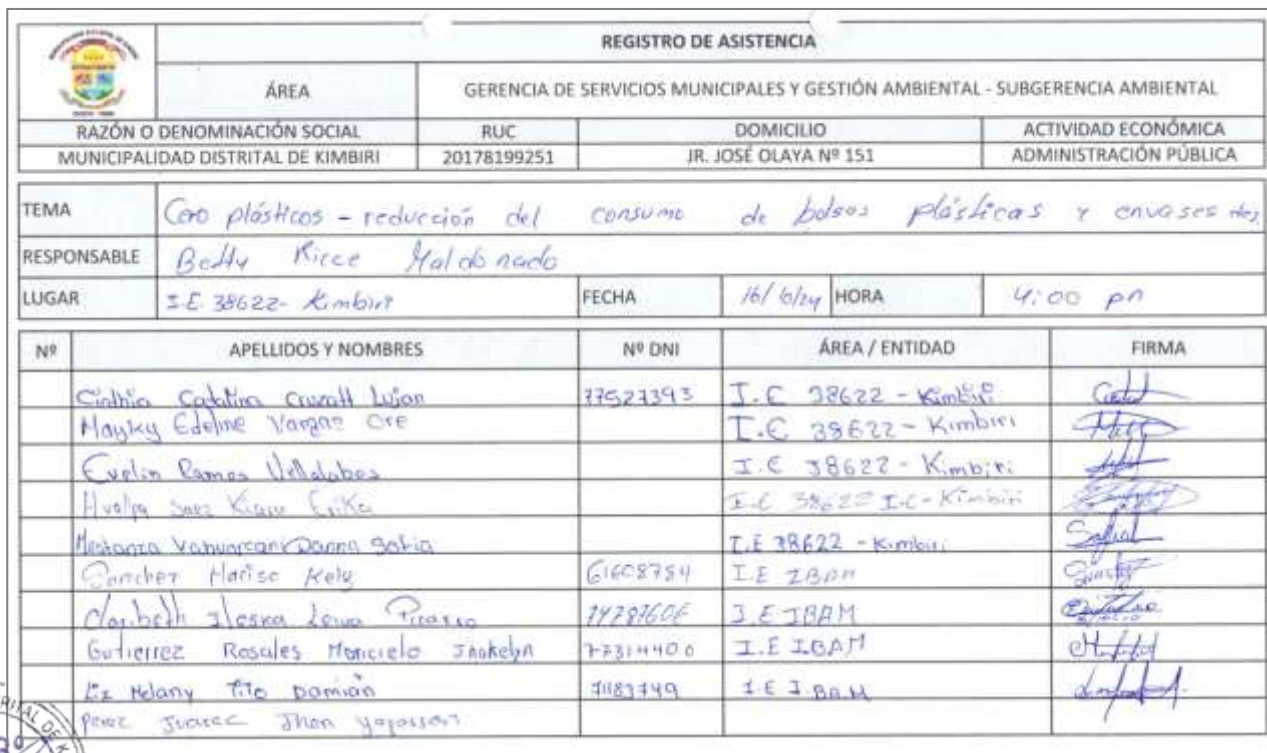 REGISTRO DE ASISTENCIA
ÁREA GERENCIA DE SERVICIOS MUNICIPALES Y GESTIÓN AMBIENTAL - SUBGERENCIA AMBIENTAL
RAZÓN O DENOMINACIÓN SOCIAL RUC DOMICILIO ACTIVIDAD ECONÓMICA
MUNICIPALIDAD DISTRITAL DE KIMBIRI 20178199251 JR. JOSÉ OLAYA Nº 151 ADMINISTRACIÓN PÚBLICA
TEMA Cero plásticos - reducción del consumo de bolsas plásticas y envases
RESPONSABLE Betty Ricce Maldonado
LUGAR I.E. 38622- Kimbiri FECHA HORA 4:00 pm
Nº APELLIDOS Y NOMBRES Nº DNI ÁREA / ENTIDAD FIRMA
Cinthia Catalina Cruzatt Lujan 77527393 I.E 38622 - Kimbiri
Mayky Edeline Vargas Cre I.E 38622 - Kimbiri
Evelin Ramos I.E 38622 - Kimbiri
Saez Erika I.E 38622 I.E - Kimbiri
Danna Sofia I.E 38622 - Kimbiri
Sanchez Kely 61608754 I.E IBAM
Leiva I.E IBAM
Gutierrez Rosales Maricielo Jhakelyn I.E IBAM
Liz Melany Tito Damián 71183749 I.E I.BAM
Perez Juarez Jhon